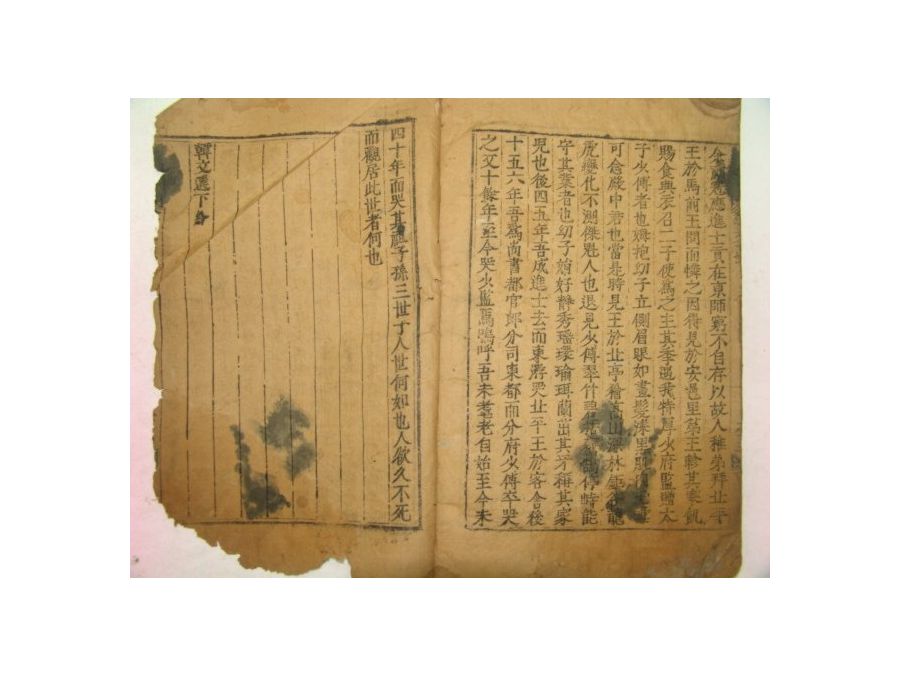 余初冠應進士貢在京師窮不自存以故人稚弟拜北平
王於馬前王問而憐之因得見於安邑里苐王軫其寒飢
賜食與衣召二子使爲之主其季遇我特厚少府監贈太
子少傅者也姆抱幼子立側眉眼如畫髮漆黑肌肉玉雪
可念殿中君也當是時見王於北亭猶高山深林鉅谷龍
虎變化不測傑魁人也退見少傅翠竹碧梧鸞鵠停峙能
守其業者也幼子娟好靜秀瑤環瑜珥蘭茁其牙稱其家
兒也後四五年吾成進士去而東游哭北平王於客舍後
十五六年吾爲尚書都官郎分司東都而分府少傅卒哭
之又十餘年至今哭少監焉嗚呼吾未耄老自始至今未
四十年而哭其祖子孫三世于人世何如也人欲久不死
而觀居此世者何也
韓文選下